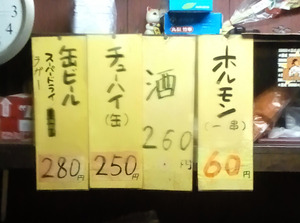 缶ビール
スーパードライ
ラガー
280円
チューハイ
(缶)
250円
酒
260円
ホルモン
(一串)
60円